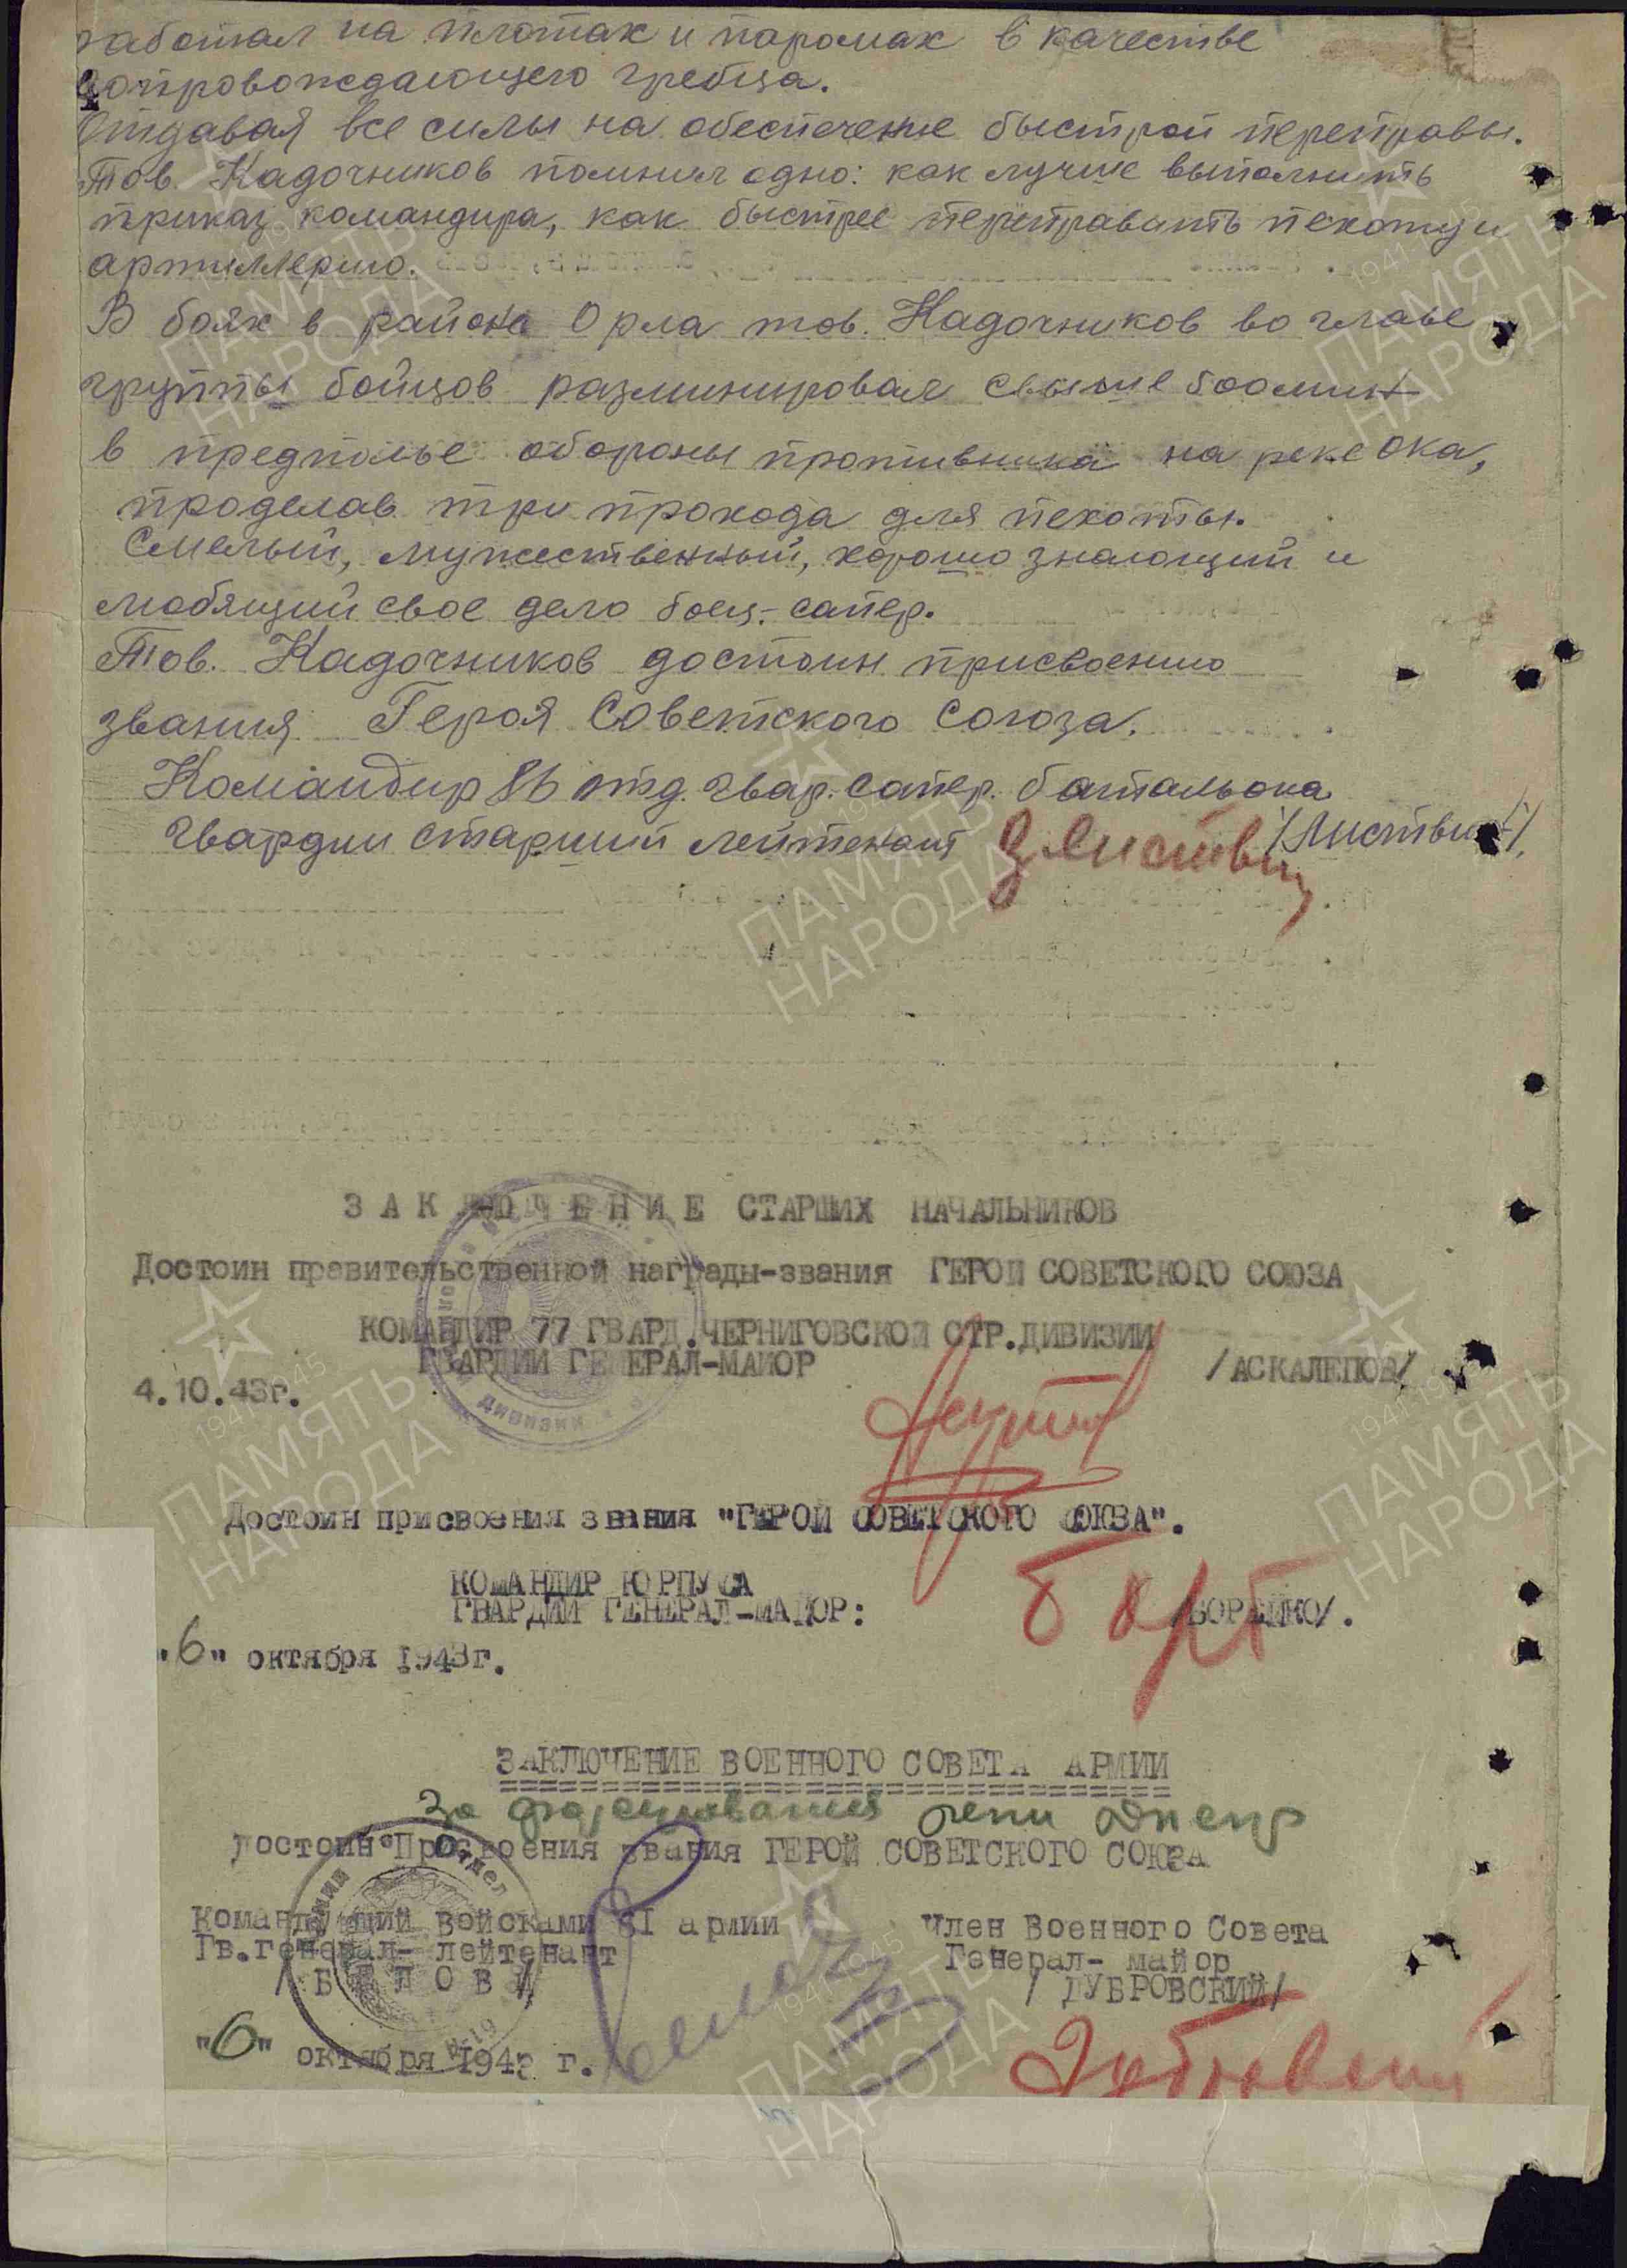 работал на плотах и паромах в качестве
сопровождающего гребца.
Отдавая все силы на обеспечение быстрой переправы.
Тов. Кадочников помнил одно: как лучше выполнить
приказ командира, как быстрее переправить пехоту и
артиллерию.
В боях в районе Орла тов. Кадочников во главе
группы бойцов разминировал свыше 600 мин
в предполье обороны противника на реке Ока,
проделав три прохода для пехоты.
Смелый, мужественный, хорошо знающий и
любящий свое дело боец-сапер.
Тов. Кадочников достоин присвоению
звания Героя Советского Союза.
Командир 86 отд. гвар. сапер. батальона
гвардии старший лейтенант /Листвин/
ЗАКЛЮЧЕНИЕ СТАРШИХ НАЧАЛЬНИКОВ
Достоин правительственной награды-звания ГЕРОЙ СОВЕТСКОГО СОЮЗА
КОМАНДИР 77 ГВАРД.ЧЕРНИГОВСКОЙ СТР.ДИВИЗИИ
ГВАРДИИ ГЕНЕРАЛ-МАЙОР /АСКАЛЕПОВ/
4.10.43г.
Достоин присвоения звания "ГЕРОЙ СОВЕТСКОГО СОЮЗА".
КОМАНДИР КОРПУСА
ГВАРДИИ ГЕНЕРАЛ-МАЙОР: /БОРЕЙКО/.
"6" октября 1943г.
ЗАКЛЮЧЕНИЕ ВОЕННОГО СОВЕТА АРМИИ
за форсирование реки Днепр
достоин Присвоения звания ГЕРОЙ СОВЕТСКОГО СОЮЗА
Командующий войсками 61 армии Член Военного Совета
Гв.генерал-лейтенант Генерал-майор
/БЕЛОВ/ /ДУБРОВСКИЙ/
"6" октября 1943 г.
ПАМЯТЬ НАРОДА
1941-1945